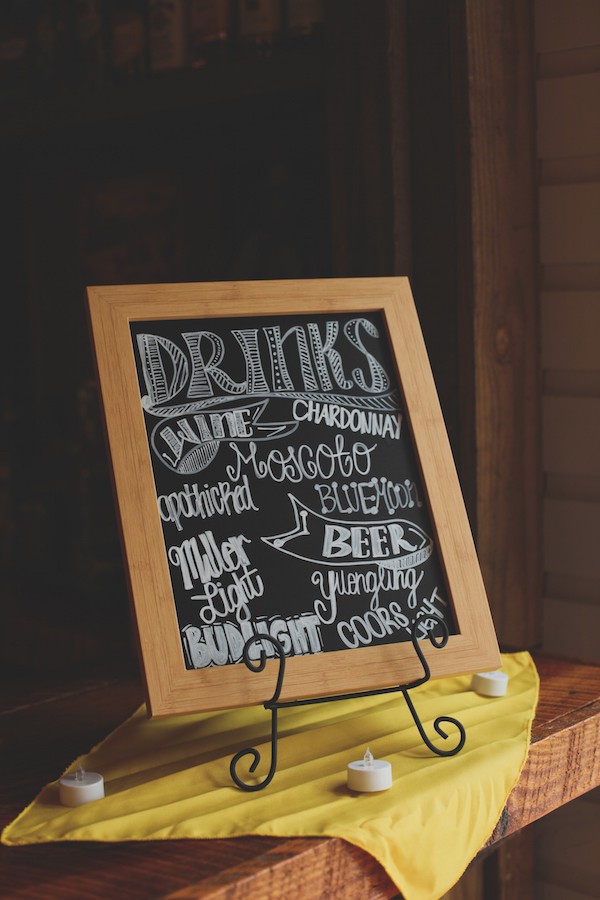 DRINKS
WINE CHARDONNAY
Moscoto
apothicRed BLUEMOON
BEER
Miller Light
Yuengling
BUDLIGHT COORS LIGHT